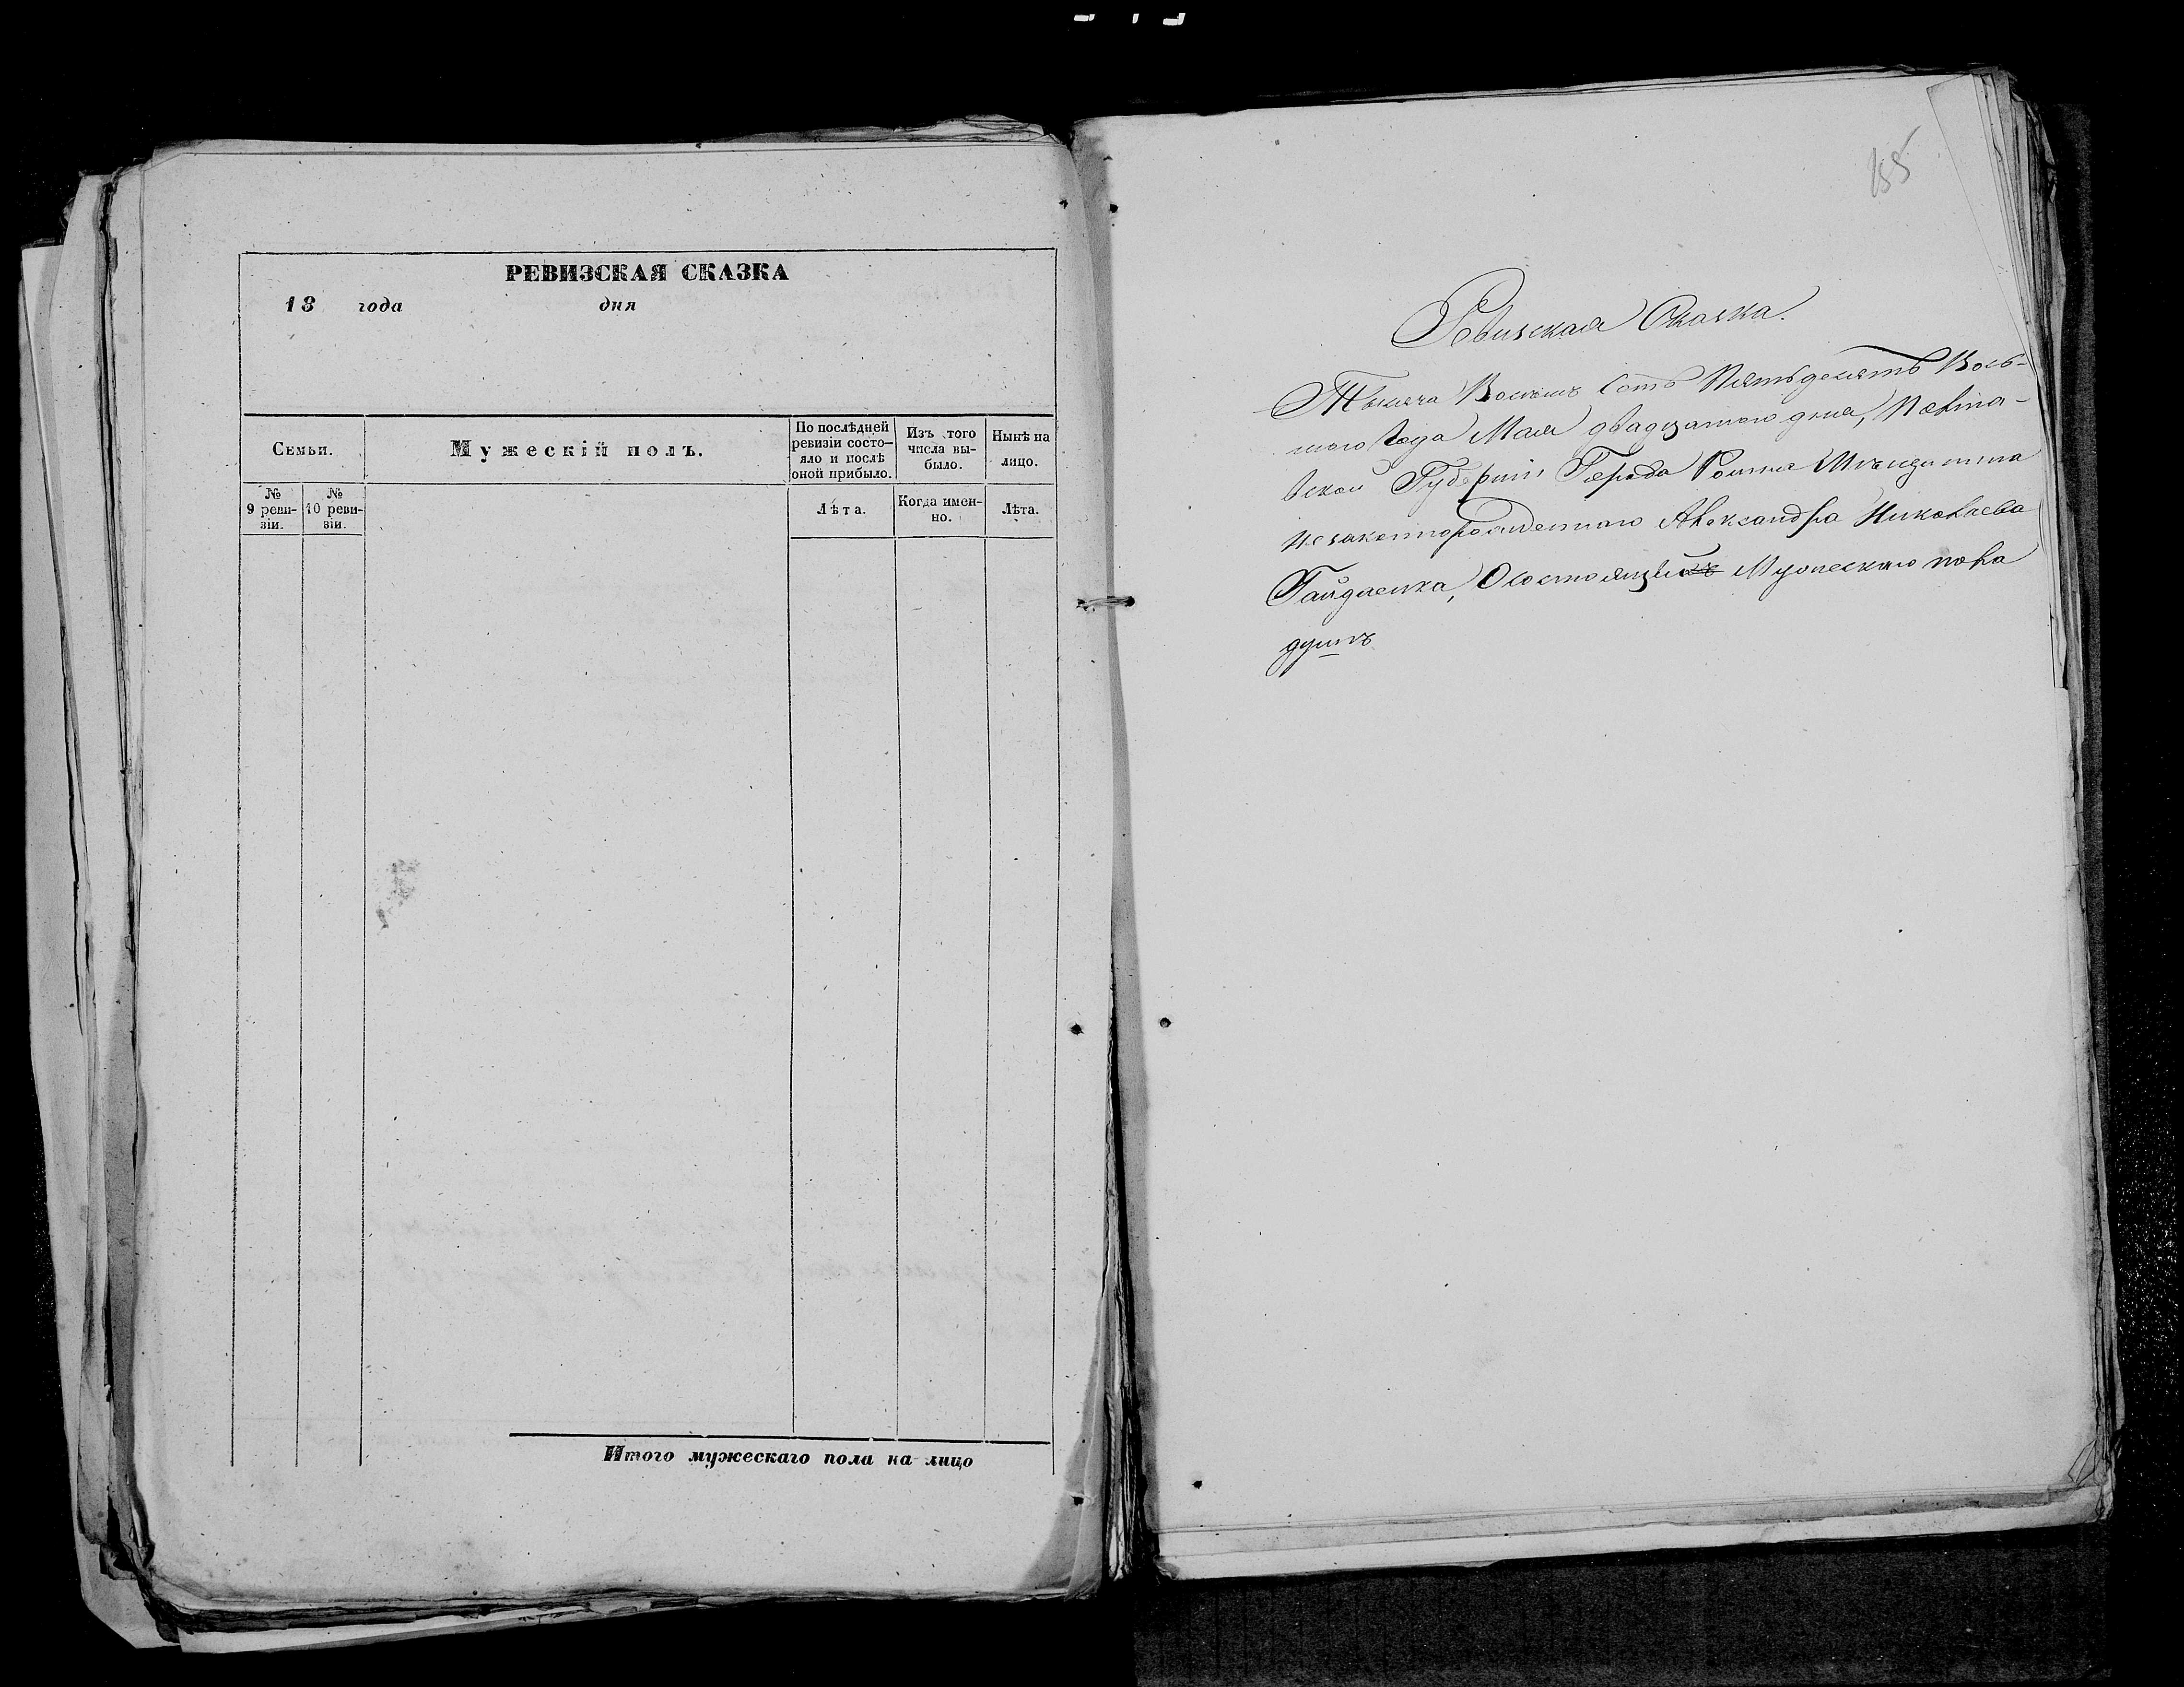 РЕВИЗСКАЯ СКАЗКА
18 года дня
Семьи.
Мужескій полъ.
По послѣдней
ревизіи состо-
яло и послѣ
оной прибыло.
Изъ того
числа вы-
было.
Нынѣ на
лицо.
№
9 реви-
зіи.
№
10 реви-
зіи.
Лѣта.
Когда имен-
но.
Лѣта.
Итого мужескаго пола на лицо
155
Ревизская Сказка.
Тысяча Восемь Сотъ Пятьдесятъ Вось-
маго Года Мая двадцатаго дня, Полта-
вской Губерніи Города Ромна Мѣщанина
Незаконнорожденнаго Александра Николаева
Гайдаенка, О состоящихъ Мужескаго пола
душъ